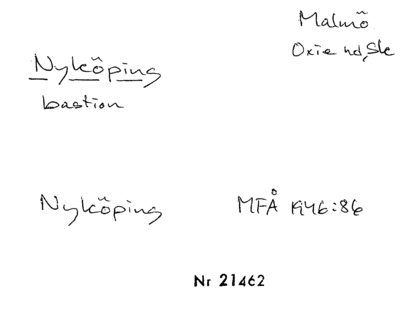 Malmö
Oxie hd, Sk
Nyköping
bastion
Nyköping
MFÅ 1946:86
Nr 21462